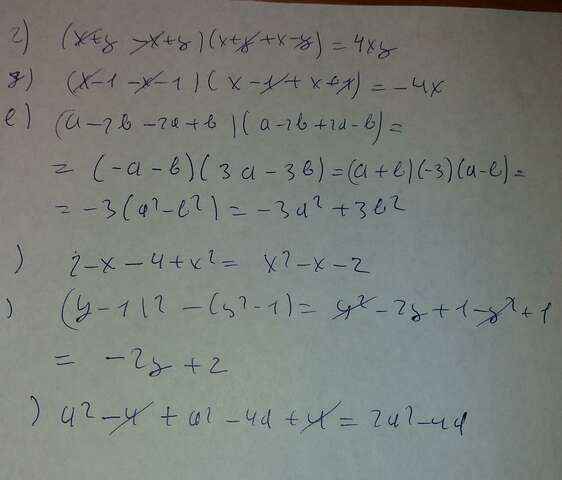 г) (x+y-x+y)(x+y+x-y)=4xy
д) (x-1-x-1)(x-1+x+1)=-4x
е) (a-2b-2a+b)(a-2b+2a-b)=
= (-a-b)(3a-3b)=(a+b)(-3)(a-b)=
= -3(a²-b²)=-3a²+3b²
) 2-x-4+x²= x²-x-2
) (y-1)²-(y²-1)= y²-2y+1-y²+1
= -2y+2
) a²-4+a²-4a+4=2a²-4a